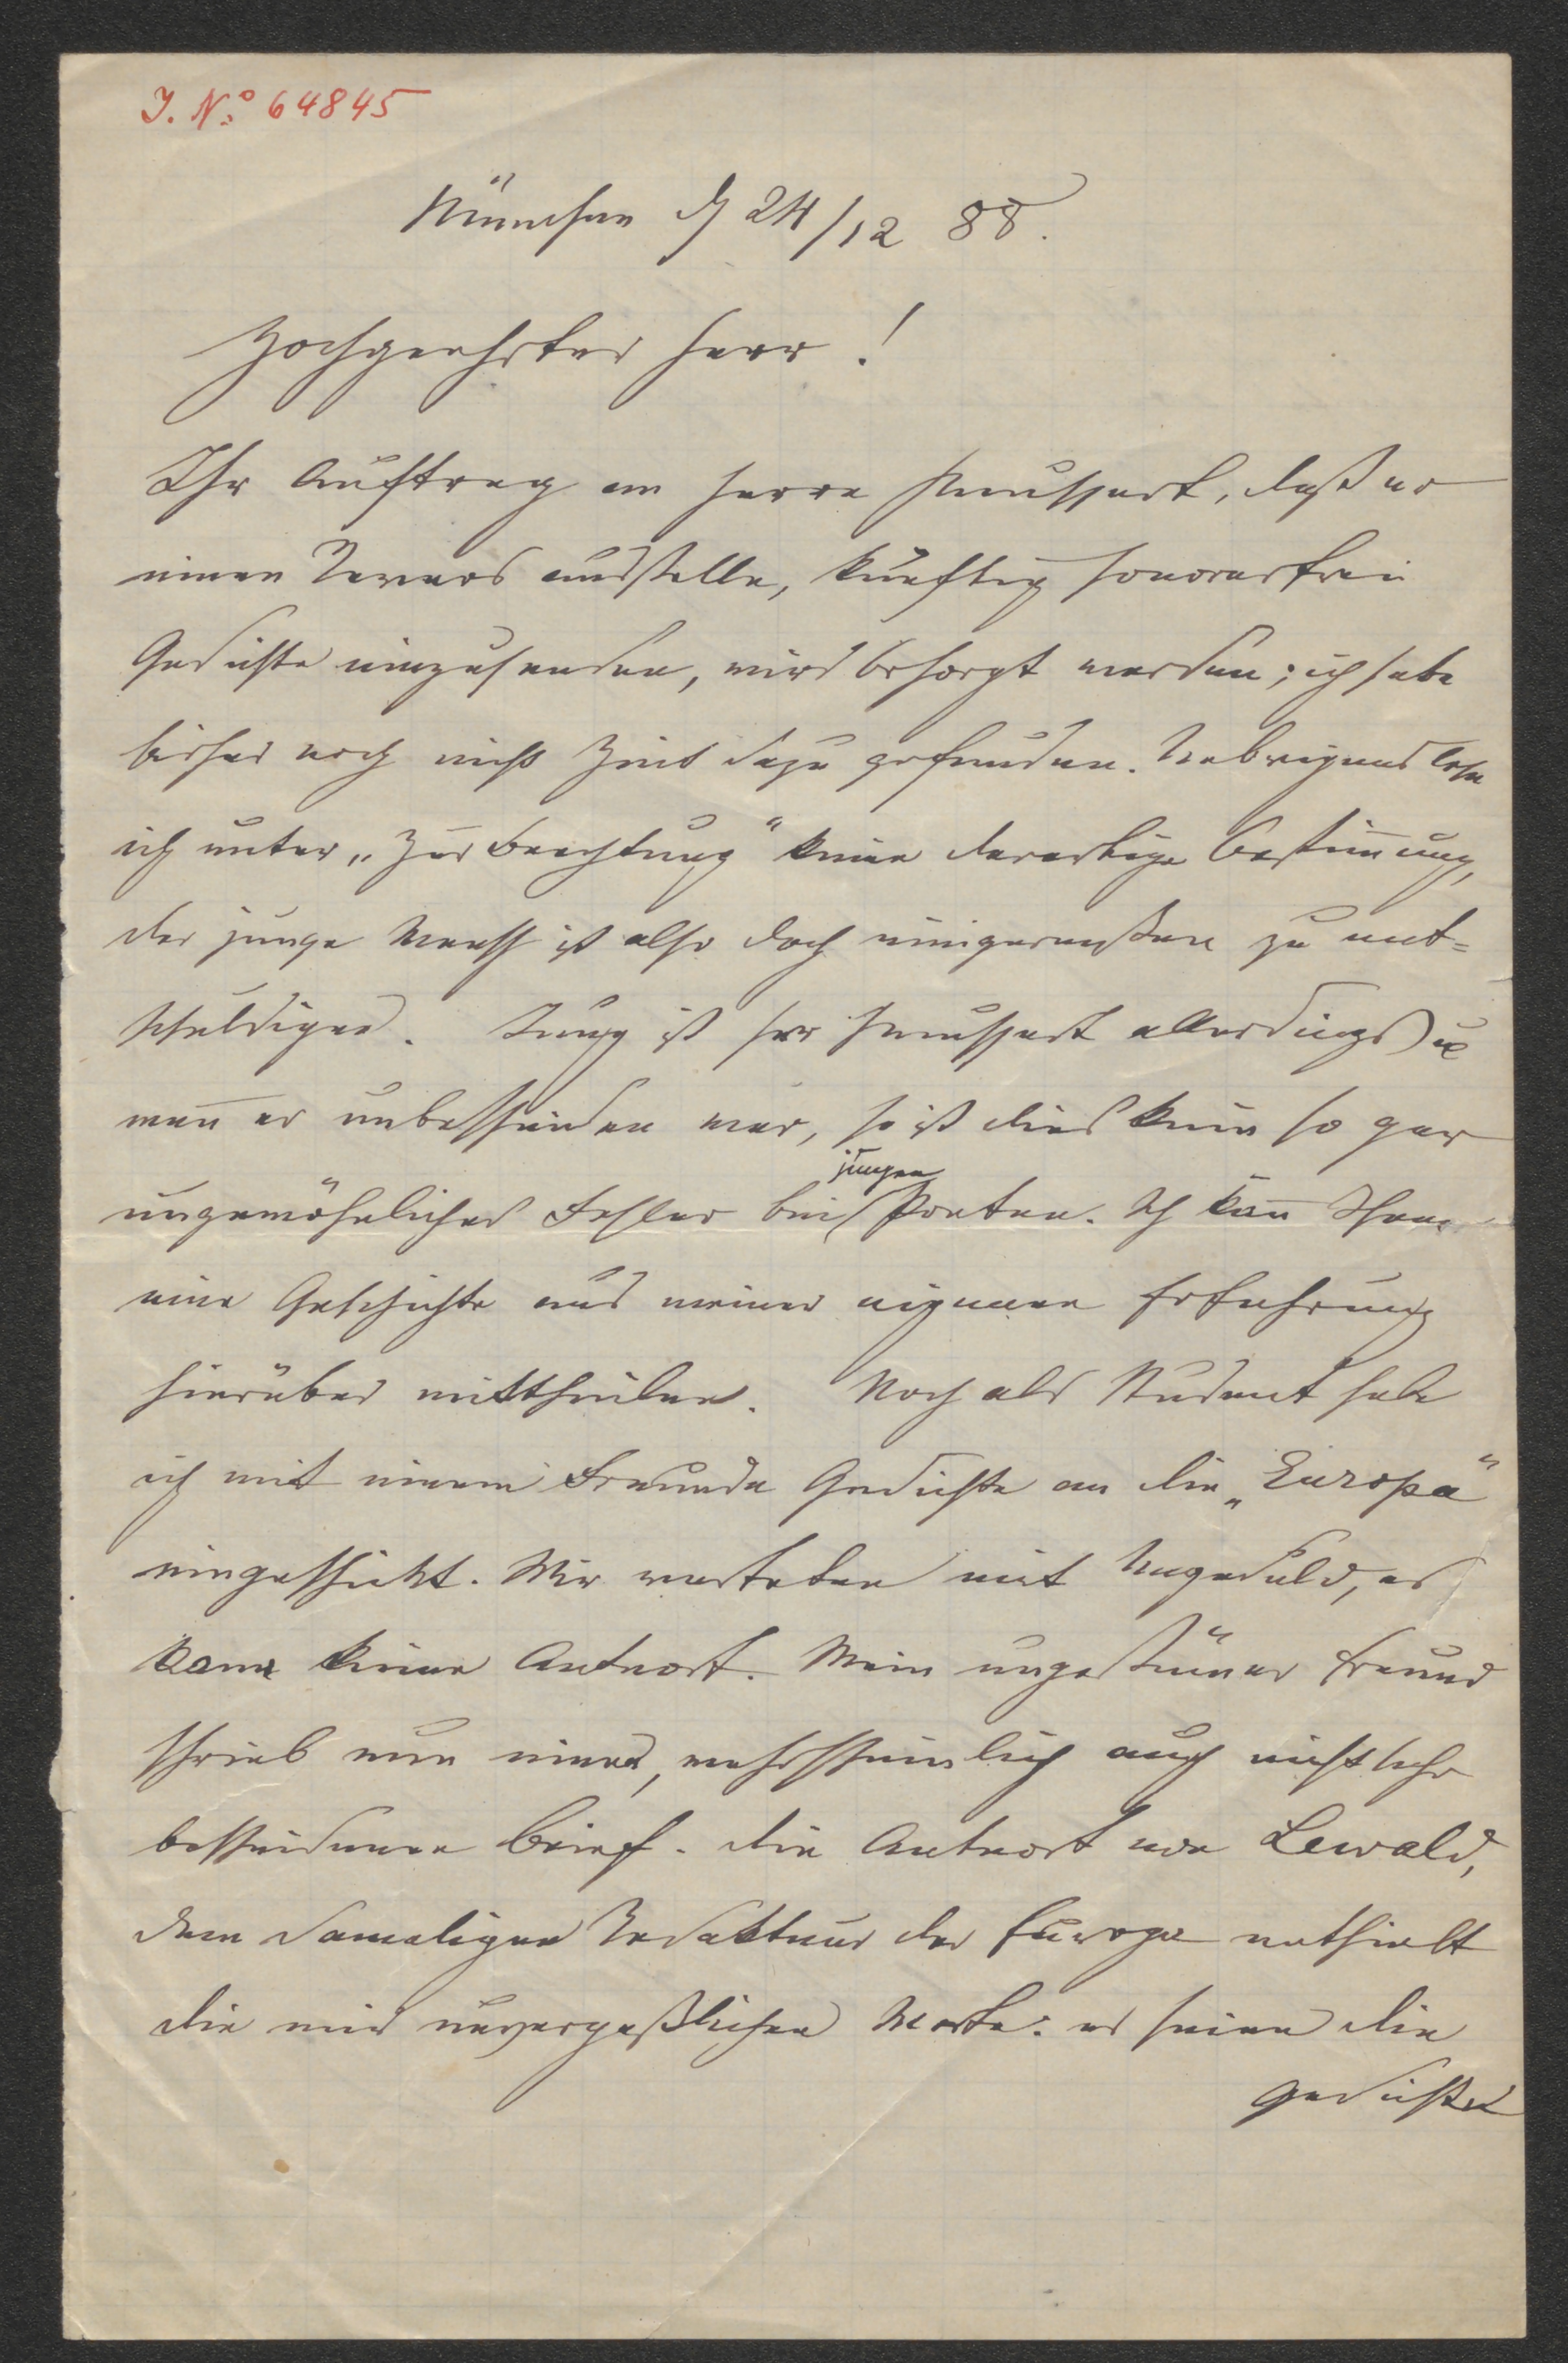 I. N.º 64845
München d 24/12 88.
Hochgeehrter Herr!
Ihr Auftrag an Herrn, daß er
einen Revers ausstelle, künftig honorarfrei
Gedichte einzusenden, wird besorgt werden; ich habe
bisher noch nicht Zeit dazu gefunden. Uebrigens lese
ich unter „Zur Beachtung" keine derartige Bestim̅ung,
der junge Mensch ist also doch einigermaßen zu ent=
schuldigen. Jung ist Herr allerdings u
wen̅ er unbescheiden war, so ist dies kein so gar
ungewöhnlicher Fehler bei jungen Poeten. Ich kan̅ Ihnen
eine Geschichte aus meiner eigenen Erfahrung
hierüber mittheilen. Noch als Student habe
ich mit einem Freunde Gedichte an die „Europa"
eingeschickt. Wir warteten mit Ungeduld, es
kam keine Antwort. Mein ungestümer Freund
schrieb nun einen, wahrscheinlich auch nicht sehr
bescheidenen Brief. Die Antwort von Lewald,
dem damaligen Redakteur der Europa enthielt
die mir unvergeßlichen Worte: es seien die
Gedichte